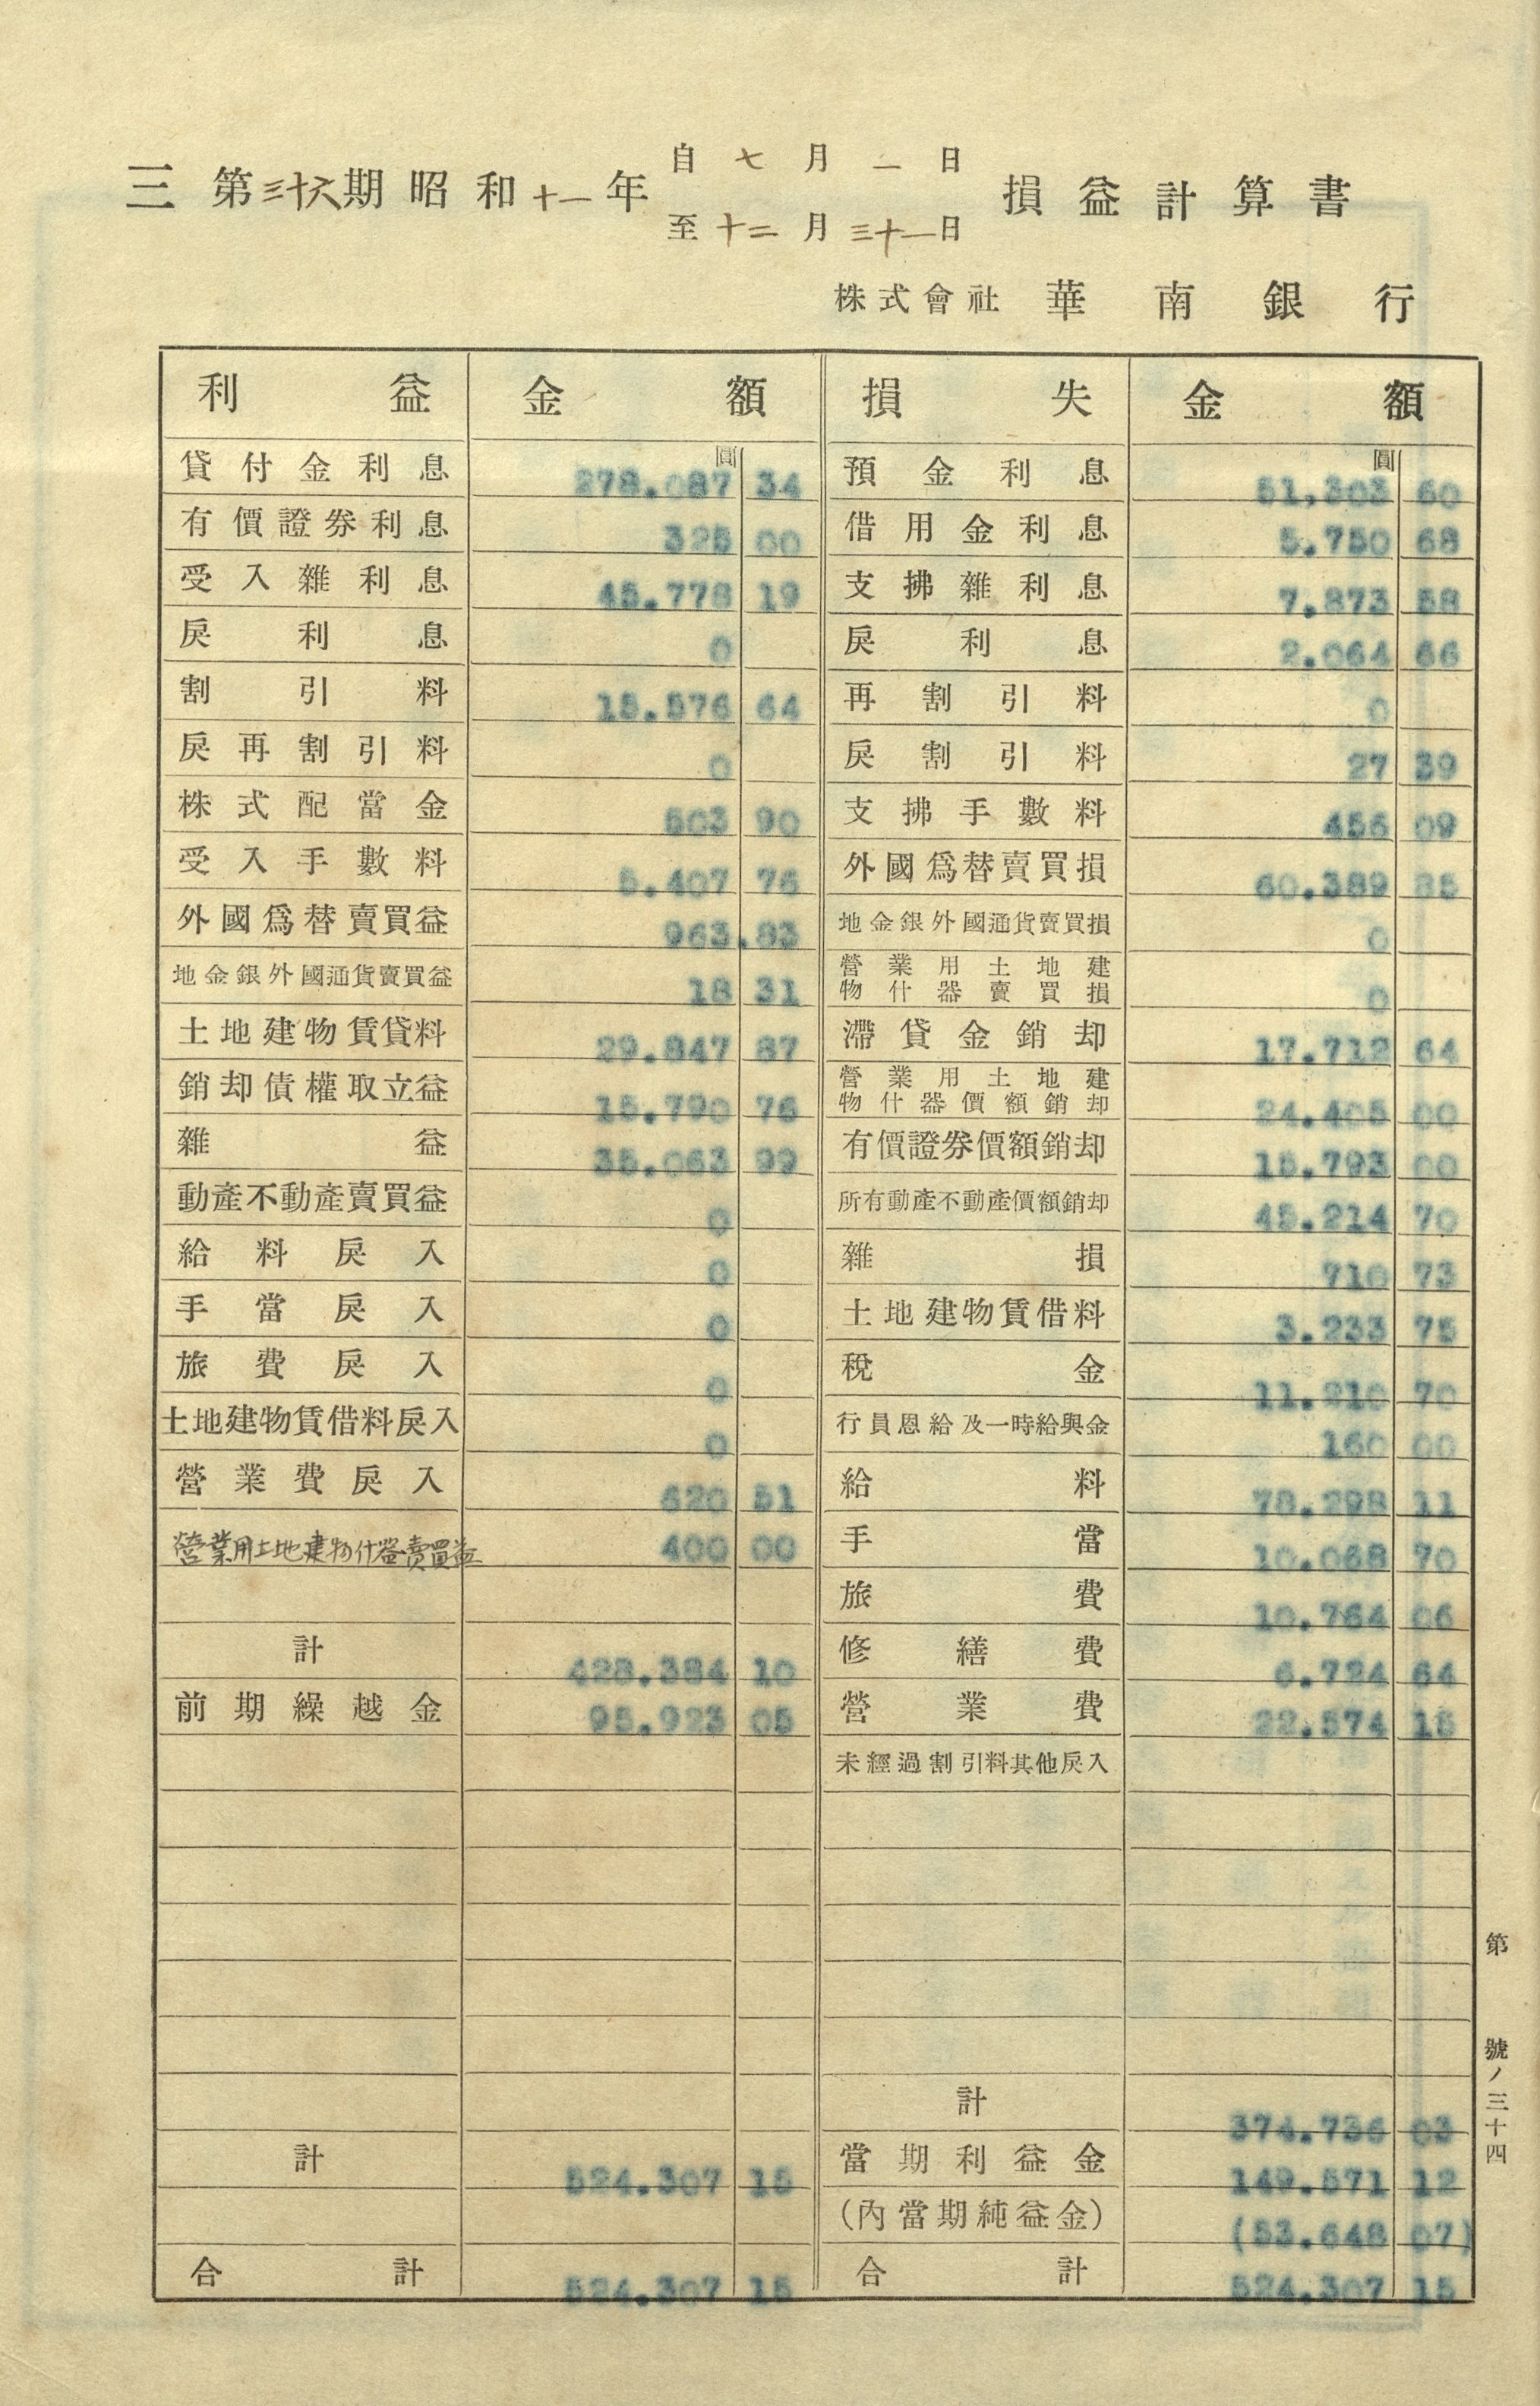 三 第三十六期昭和十一年 自七月一日 至十二月三十一日 損益計算書
株式會社 華南銀行
利益 金額 損失 金額
圓 圓
貸付金利息 278.087 34 預金利息 51,303 60
有價證券利息 325 00 借用金利息 5.750 68
受入雜利息 45.778 19 支拂雜利息 7.873 58
戾利息 0 戾利息 2.064 66
割引料 15.576 64 再割引料 0
戾再割引料 0 戾割引料 27 39
株式配當金 503 90 支拂手數料 456 09
受入手數料 5.407 76 外國爲替賣買損 60.389 85
外國爲替賣買益 963.83 地金銀外國通貨賣買損 0
地金銀外國通貨賣買益 18 31 營業用土地建物什器賣買損 0
土地建物賃貸料 29.847 87 滯貸金銷却 17.712 64
銷却債權取立益 15.790 76 營業用土地建物什器價額銷却 24.405 00
雜益 35.063 99 有價證券價額銷却 15.793 00
動產不動產賣買益 0 所有動產不動產價額銷却 45.214 70
給料戾入 0 雜損 710 73
手當戾入 0 土地建物賃借料 3.233 75
旅費戾入 0 稅金 11.210 70
土地建物賃借料戾入 0 行員恩給及一時給與金 160 00
營業費戾入 620 51 給料 78.298 11
營業用土地建物什器賣買益 400 00 手當 10.068 70
旅費 10.764 06
計 428.384 10 修繕費 6.724 64
前期繰越金 95.923 05 營業費 22.574 15
未經過割引料其他戾入
計 374.736 03
計 524.307 15 當期利益金 149.571 12
(內當期純益金) (53.648 07)
合計 524.307 15 合計 524.307 15
第 號ノ三十四